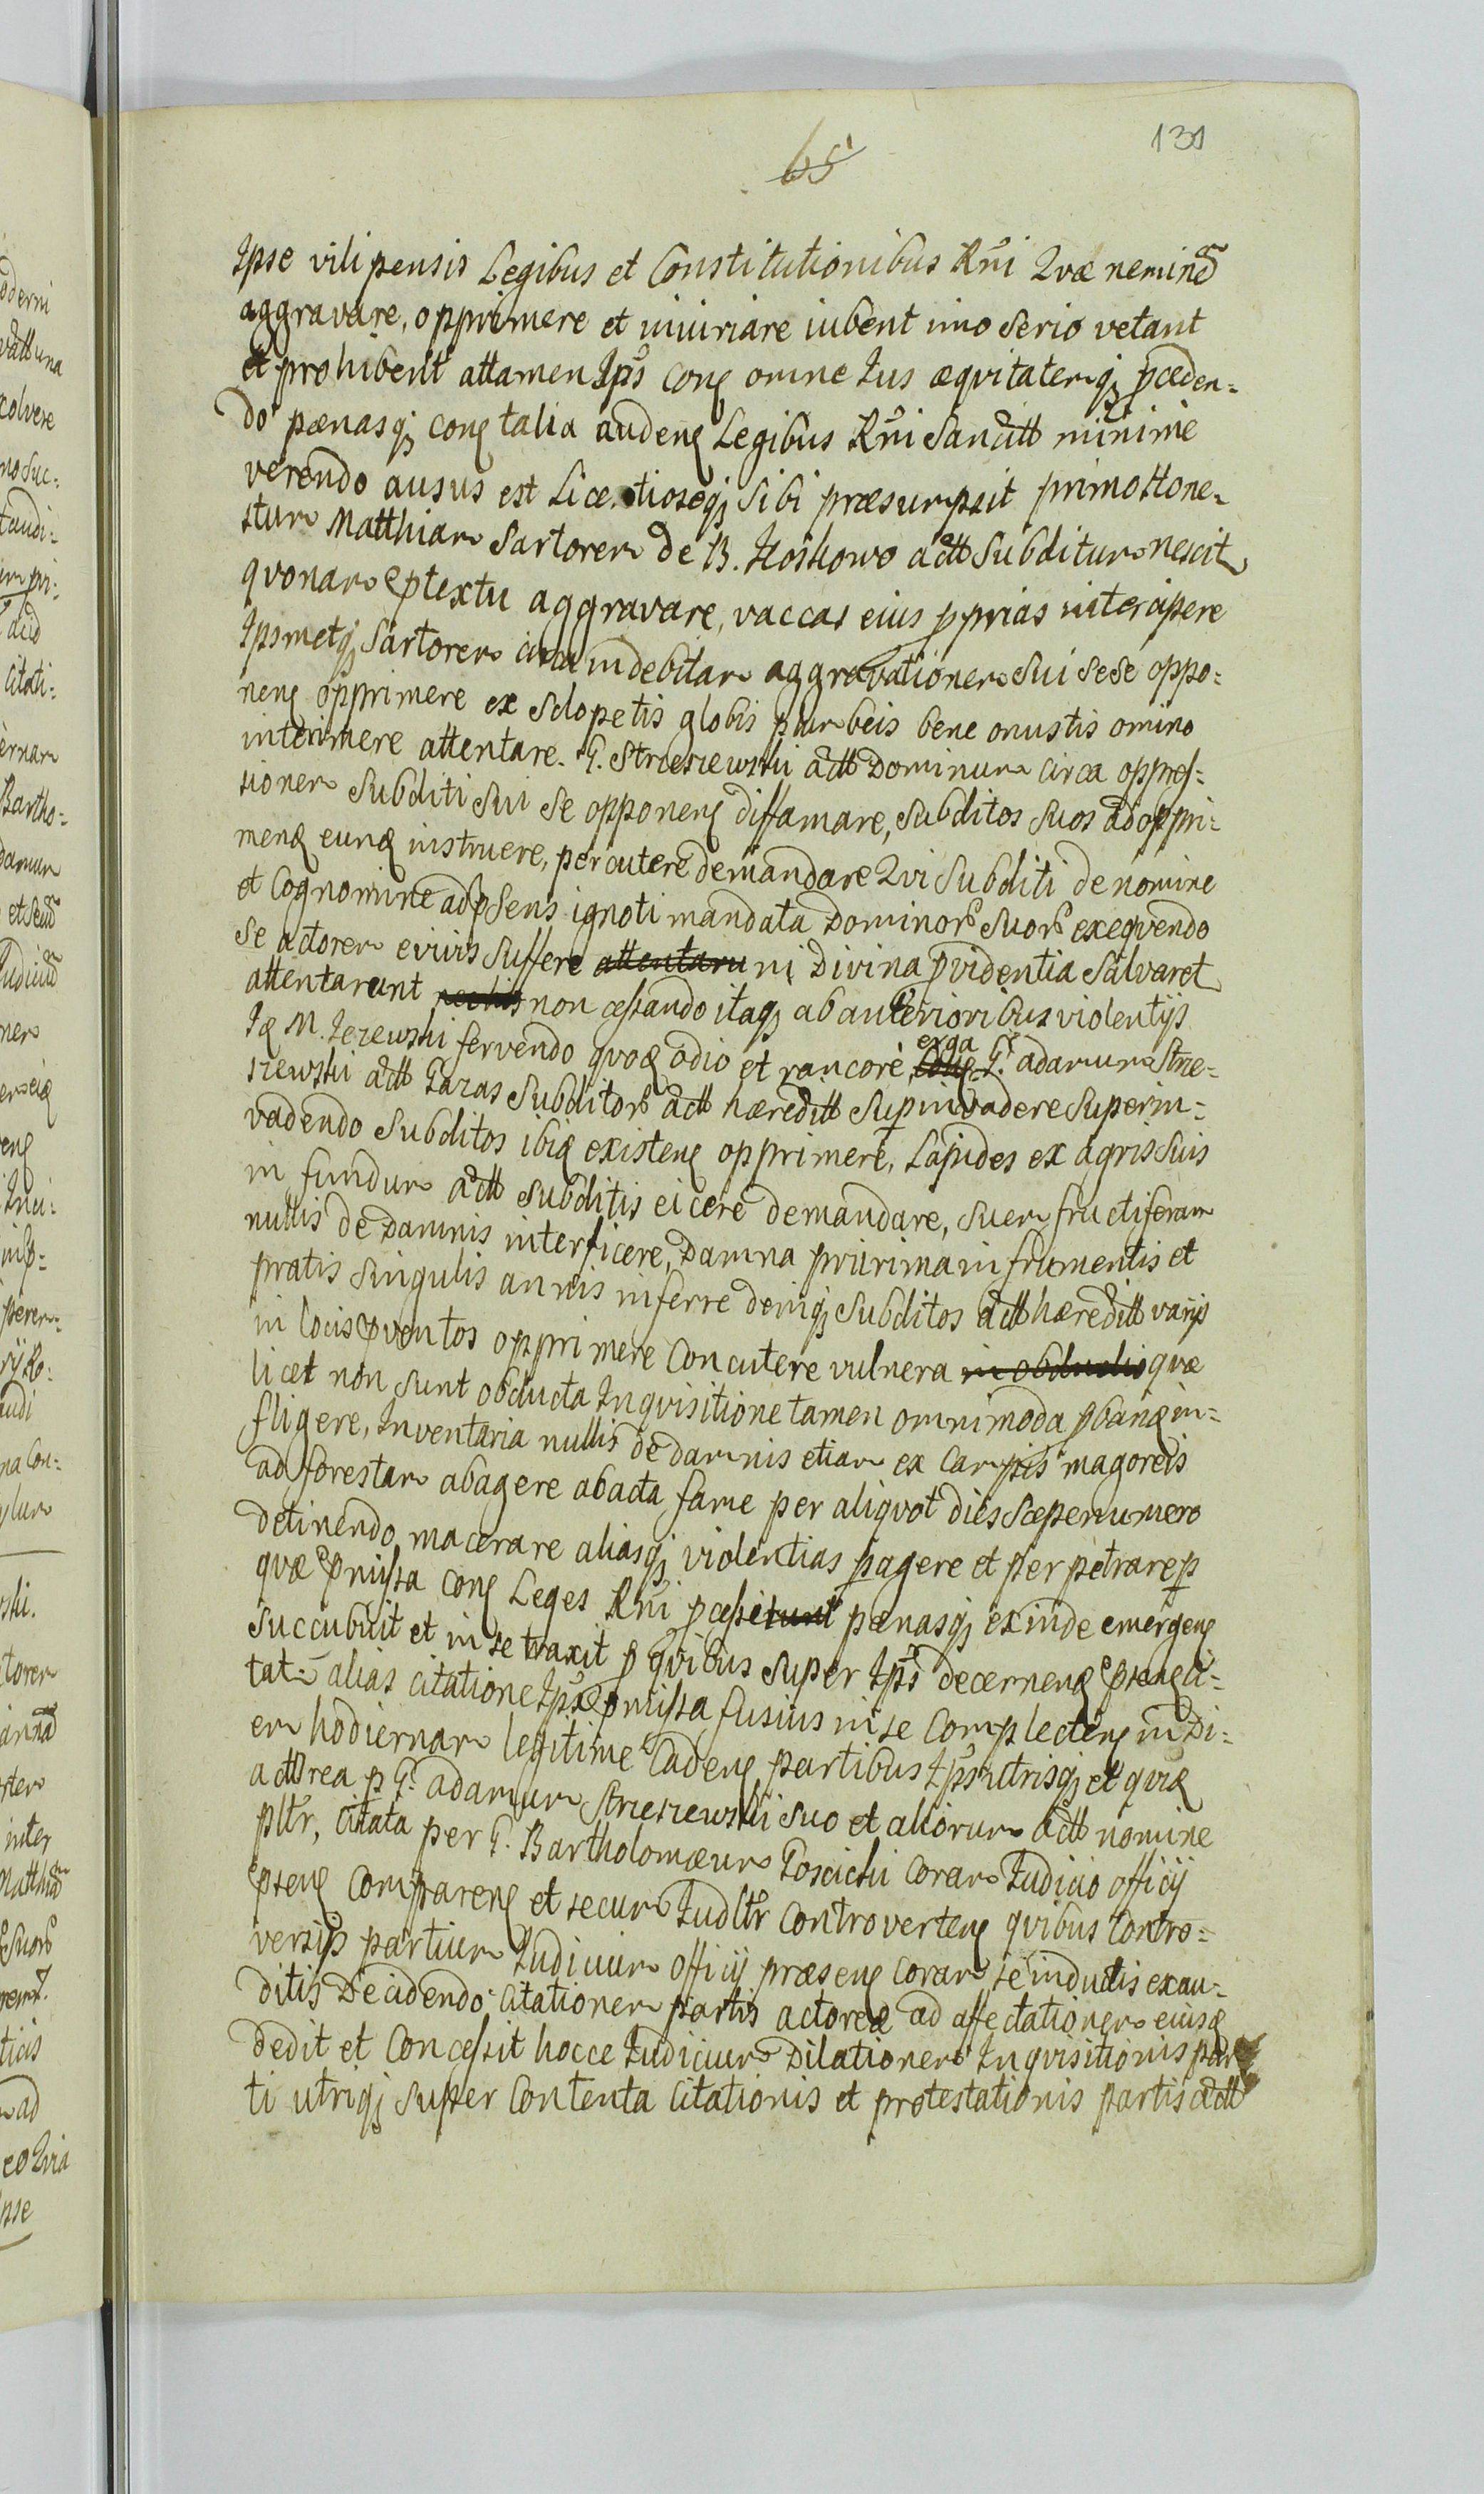 131
65
Ipse vilipensis Legibus et Constitutionibus Rni Qvæ neminẽ
aggravare, opprimere et iniuriare iubent imo serio vetant
et prohibent attamen Ips̃ conę omne Ius æqvitatemqȝ pceden-
do pænasqȝ conę talia audenę Legibus Rni Sanctt minime
verendo ausus est Lice tioseqȝ sibi præsumpsit primo Hone-
stum Matthiam Sartorem de B. Koskowo actt Subditum nescit
qvonam ptextu aggravare, vaccas eius pprias intercipere
Ipsmetqȝ Sartorem circa indebitam aggravationem sui sese oppo-
nenę opprimere ex Sclopetis globis plumbeis bene onustis omino
interimere attentare. G. Strzeszewski actt Dominum circa oppres-
sionem Subditi sui se opponenę diffamare, subditos suos ad oppri-
menę eunę instruere, percutere demandare Qvi Subditi de nomine
et Cognomine ad psens ignoti mandata Dominor suor exeqvendo
se actorem e vivis suffere attentaru ni Divina pvidentia Salvaret
attentarunt non cessando itaqȝ ab anterioribus violentijs
Ię M. Jezewski fervendo qvoę odio et rancore erga G. adamum Strze-
szewski actt Gazas Subditor actt hæreditt sup invadere superin-
vadendo Subditos ibię existenę opprimere, Lapides ex agris suis
in fundum actt subditis eicere demandare, suem fructiferam
nullis de damnis interficere, Damna plurima in frumentis et
pratis singulis annis inferre deniqȝ subditos actt hæreditt varijs
in locis pventos opprimere concutere vulnera in obductis qvæ
licet non sunt obducta Inqvisitione tamen omnimoda pbanę in-
fligere, Inventaria nullis de damnis etiam ex campis magoreis
ad forestam abagere abacta fame per aliqvot dies sæpenumero
detinendo macerare aliasqȝ violentias pagere et perpetrare p
qvæ pmissa conę Leges Rni pcessit pænasqȝ exinde emergenę
succubuit et in se traxit p qvibus super Ips̃ decernenę psenę ci-
tat: alias citatione Ips̃ pmissa fusius in se complectenę in Di-
em hodiernam legitime Cadenę partibus Ips̃ utrisqȝ et qvię
acttrea p G. adamum Strzeszewski suo et aliorum actt nomine
pltr, Citata per G. Bartholomæum Goscicki Coram Iudicio officij
psenę Comparenę et secum Iudltr Controvertenę qvibus Contro-
versijs partium Iudicium officij præsenę coram se inductis exau-
ditis Decidendo Citationem partis actoreæ ad affectationem eiusę
dedit et Concessit hocce Iudicium Dilationem Inqvisitionis par
ti utriqȝ super Contenta Citationis et protestationis partis actt